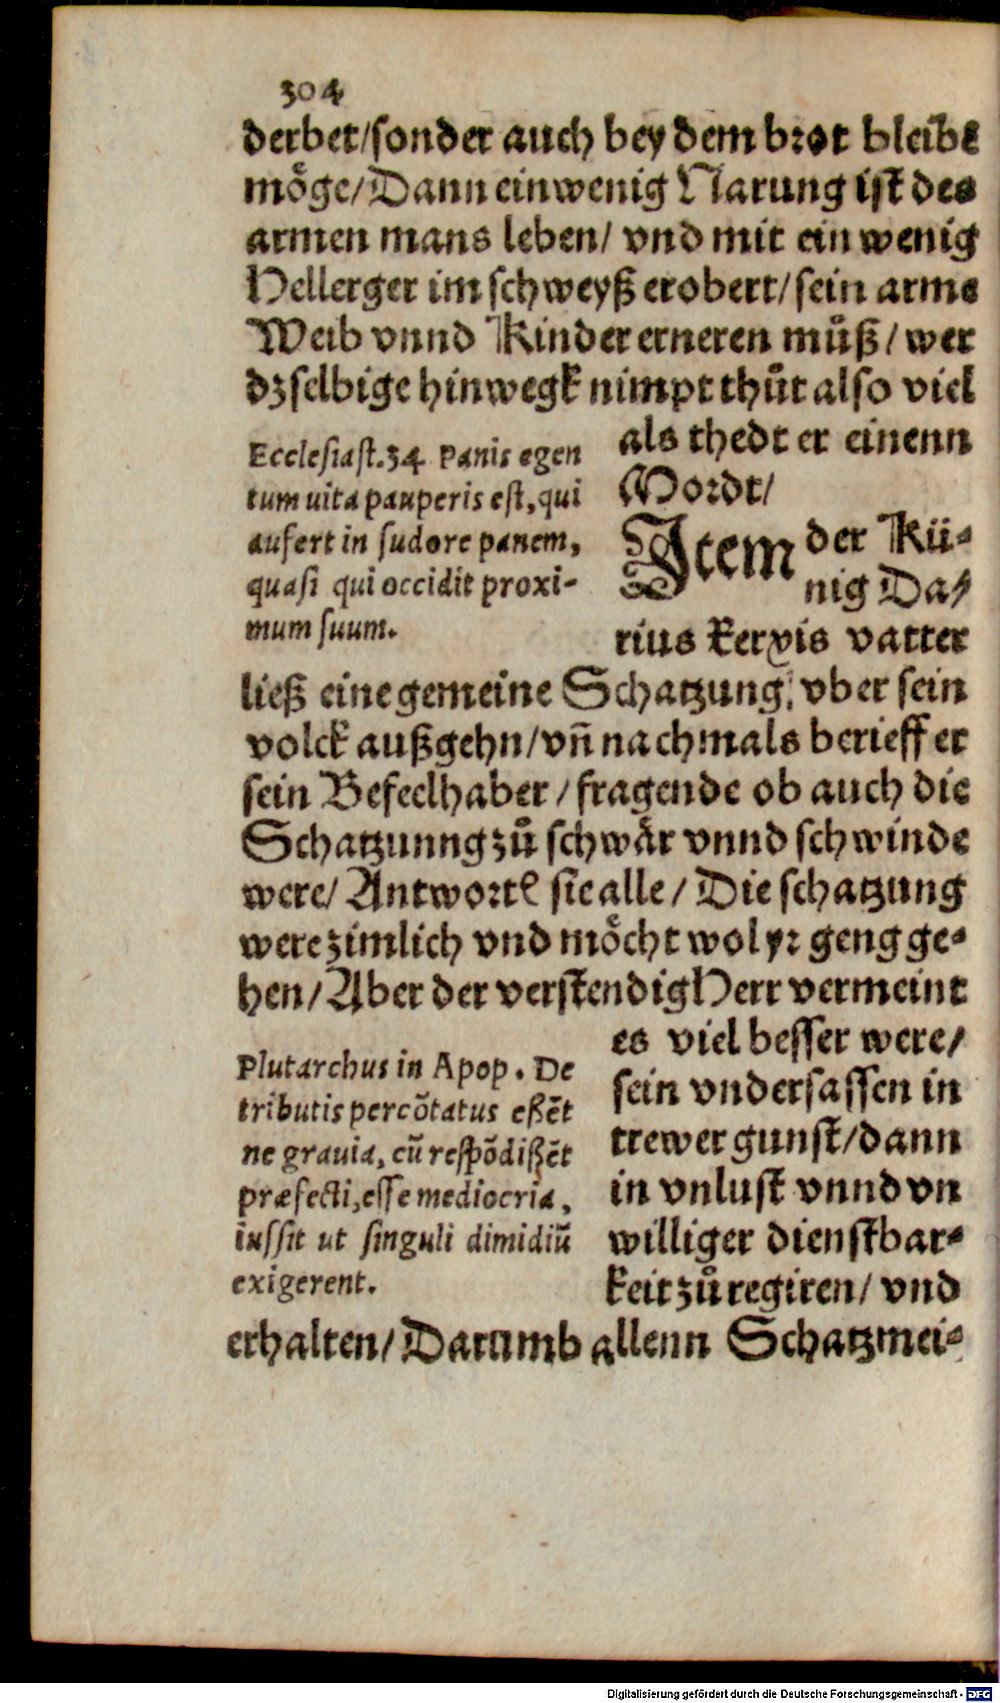 304
derbet/sonder auch bey dem brot bleibẽ
möge/Dann ein wenig Narung ist des
armen mans leben/ vnd mit ein wenig
Hellerger im schweyß erobert/sein arme
Weib vnnd Kinder erneren muͤß/ wer
dzselbige hinwegk nimpt thuͤt also viel
als thedt er einenn
Mordt/
Ecclesiast.34 Panis egen
tum uita pauperis est, qui
aufert in sudore panem,
quasi qui occidit proxi-
mum suum.
Item der Kü-
nig Da/
rius Xerxis vatter
ließ eine gemeine Schatzung, vber sein
volck außgehn/vñ nachmals berieff er
sein Befeelhaber / fragende ob auch die
Schatzunng zuͦ schwaͤr vnnd schwinde
were/ Antwortẽ sie alle / Die schatzung
were zimlich vnd moͤcht wol yr geng ge-
hen/ Aber der verstendig Herr vermeint
es viel besser were/
sein vndersassen in
trewer gunst/dann
in vnlust vnnd vn
williger dienstbar-
keit zuͦ regiren/ vnd
Plutarchus in Apop. De
tributis percõtatus eßẽt
ne grauia, cũ respõdißẽt
præfecti, esse mediocria,
iussit ut singuli dimidiũ
exigerent.
erhalten/ Darumb allenn Schatzmei-
Digitalisierung gefördert durch die Deutsche Forschungsgemeinschaft - DFG